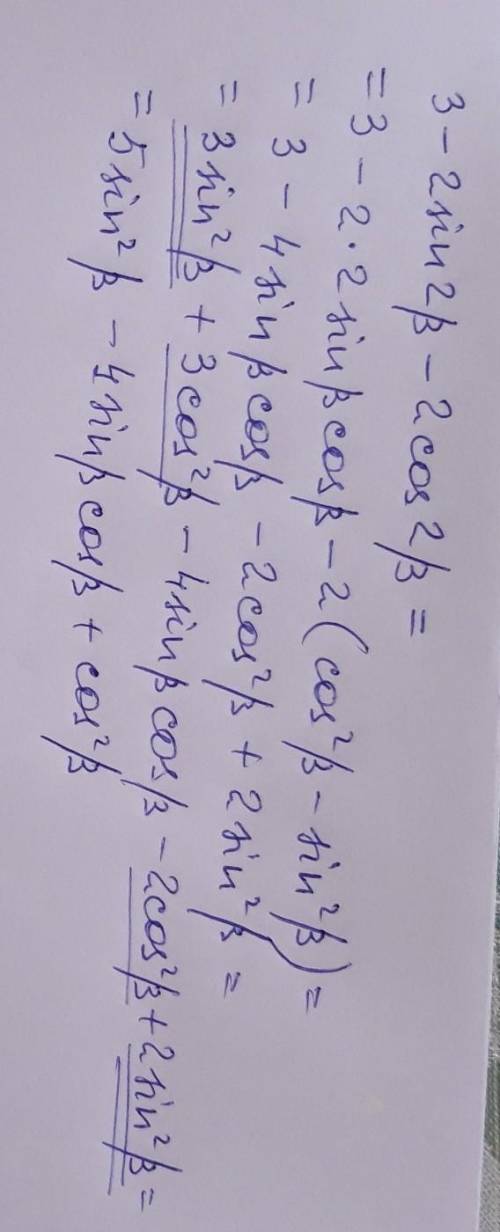 3 - 2sin2β - 2cos2β =
= 3 - 2·2sinβcosβ - 2(cos²β - sin²β) =
= 3 - 4sinβcosβ - 2cos²β + 2sin²β =
= 3sin²β + 3cos²β - 4sinβcosβ - 2cos²β + 2sin²β =
= 5sin²β - 4sinβcosβ + cos²β